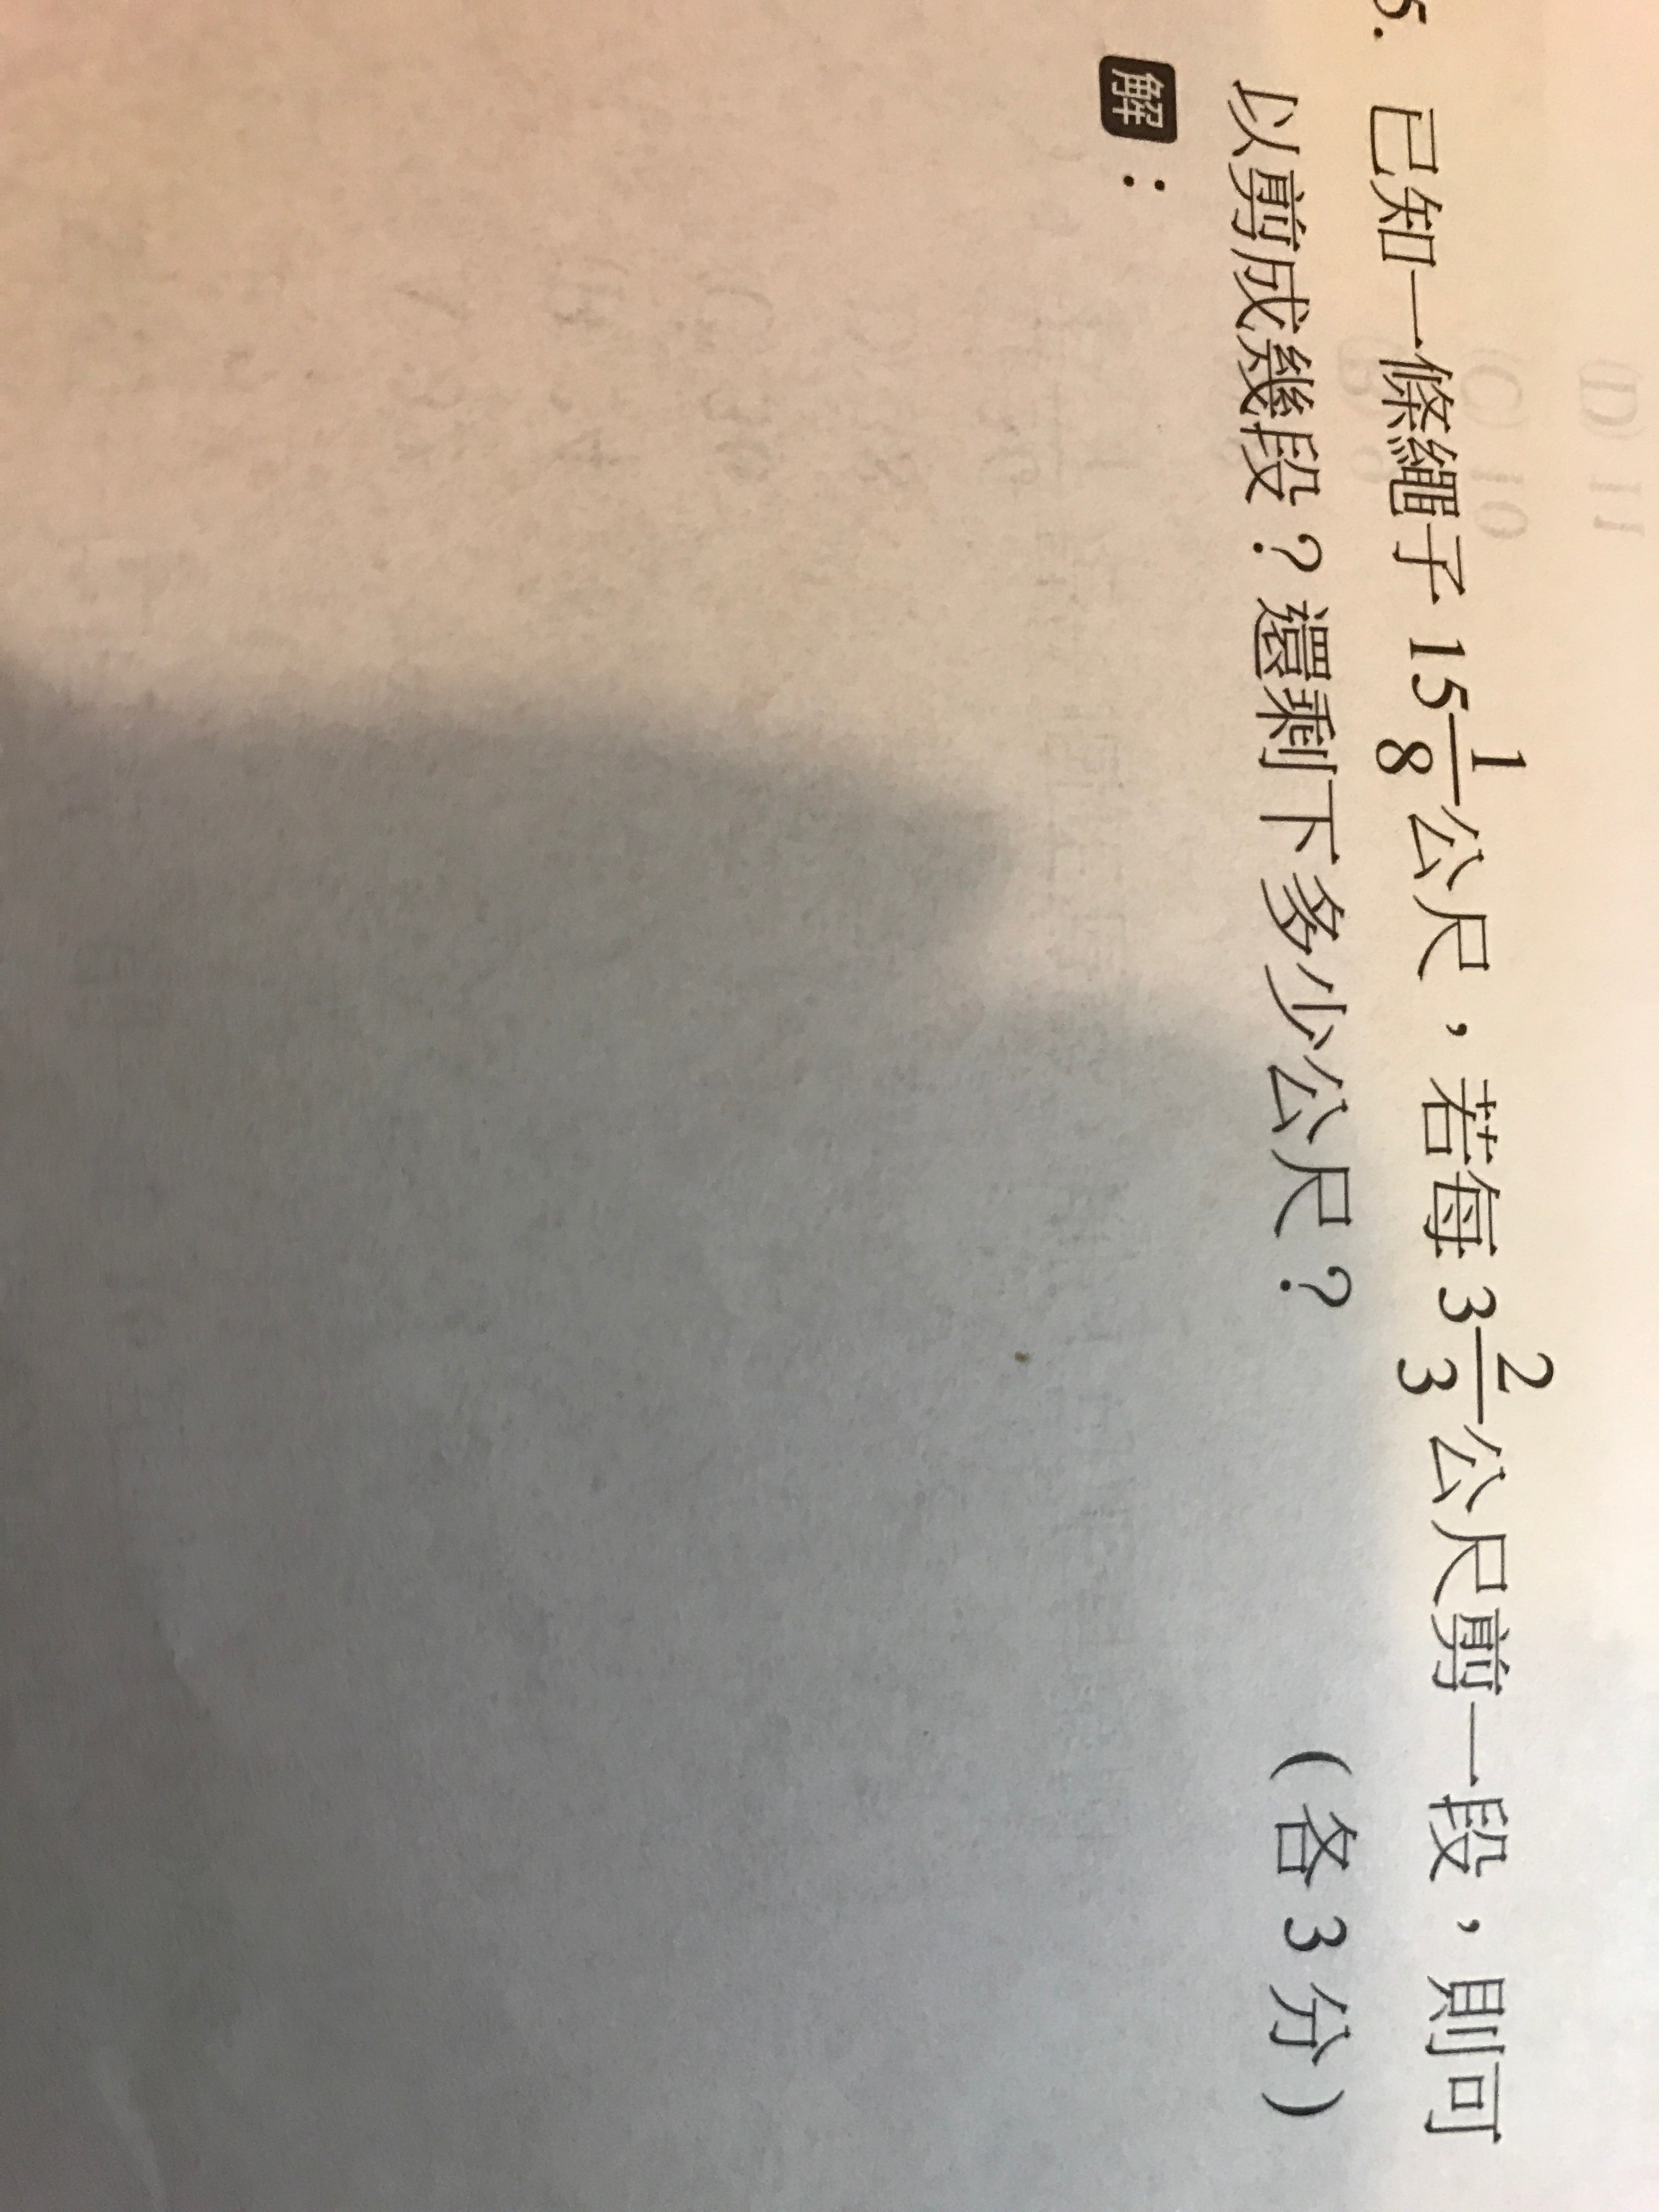 5. 已知一條繩子 15 1/8 公尺，若每 3 2/3 公尺剪一段，則可
以剪成幾段？還剩下多少公尺？ （各 3 分）
解：